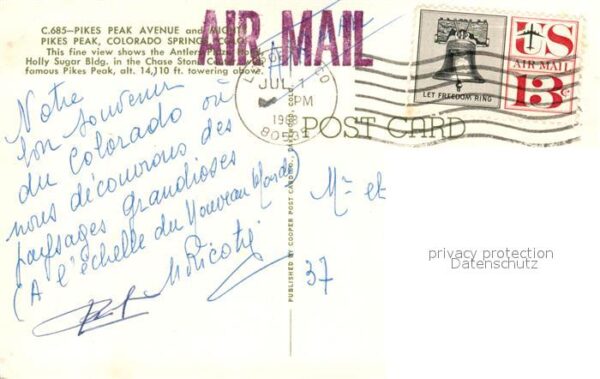 C.685—PIKES PEAK AVENUE and MIGHTY
PIKES PEAK, COLORADO SPRINGS, COLO.
This fine view shows the Antlers Plaza Hotel,
Holly Sugar Bldg. in the Chase Stone Center with
famous Pikes Peak, alt. 14,110 ft. towering above.
AIR MAIL
JUL 1
PM
1968
LET FREEDOM RING
US
AIR MAIL
13c
POST CARD
Notre
bon souvenir
du Colorado où
nous découvrons des
paysages grandioses
(A l'échelle du Nouveau Monde)
PUBLISHED BY COOPER POST CARD CO., DARWOOD, COLO.
Mr et
37
privacy protection
Datenschutz